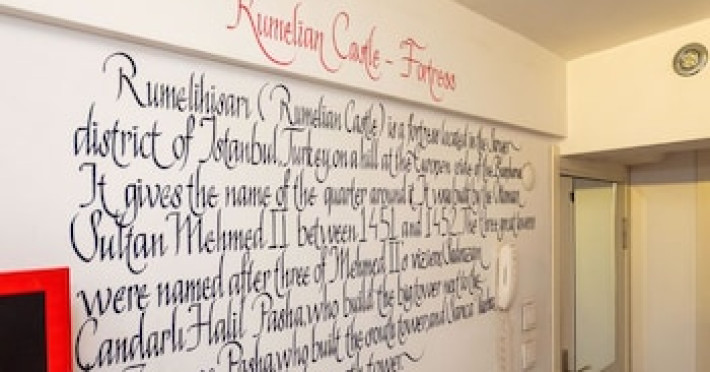 Rumelian Castle - Fortress
Rumelihisarı (Rumelian Castle) is a fortress located in the Sarıyer
district of Istanbul, Turkey, on a hill at the European side of the Bosphorus
It gives the name of the quarter around it. It was built by the Ottoman
Sultan Mehmed II between 1451 and 1452. The three great towers
were named after three of Mehmed II's viziers,
Candarlı Halil Pasha, who build the big tower next to the
Pasha, who built the south tower, and Sarıca Pasha
tower.